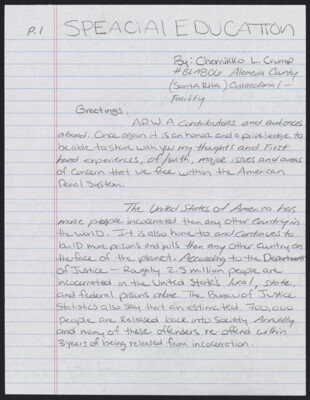 P.1 SPEACIAL EDUCATION
By: Chernikko L. Crump
#BLA806 Alameda County
(SANTA RITA) Correctional -
Facility
Greetings,
A.P.W.A Contributors and audiences
abroad. Once again it is an honor and a priveledge to
be able to share with you my thoughts and first
hand experiences, of, with, major issues and areas
of concern that we face within the American
Penal System.
The United States of America has
more people incarcerated than any other Country in
the world. It is also home to and continues to
build more prisons and jails than any other Country on
the face of the planet. According to the Department
of Justice - Roughly 2.5 million people are
incarcerated in the United States local, state,
and federal prisons alone. The Bureau of Justice
Statistics also say that an estimated 700,000
people are Released back into society Annually
and many of these offenders re-offend within
3 years of being released from incarceration.